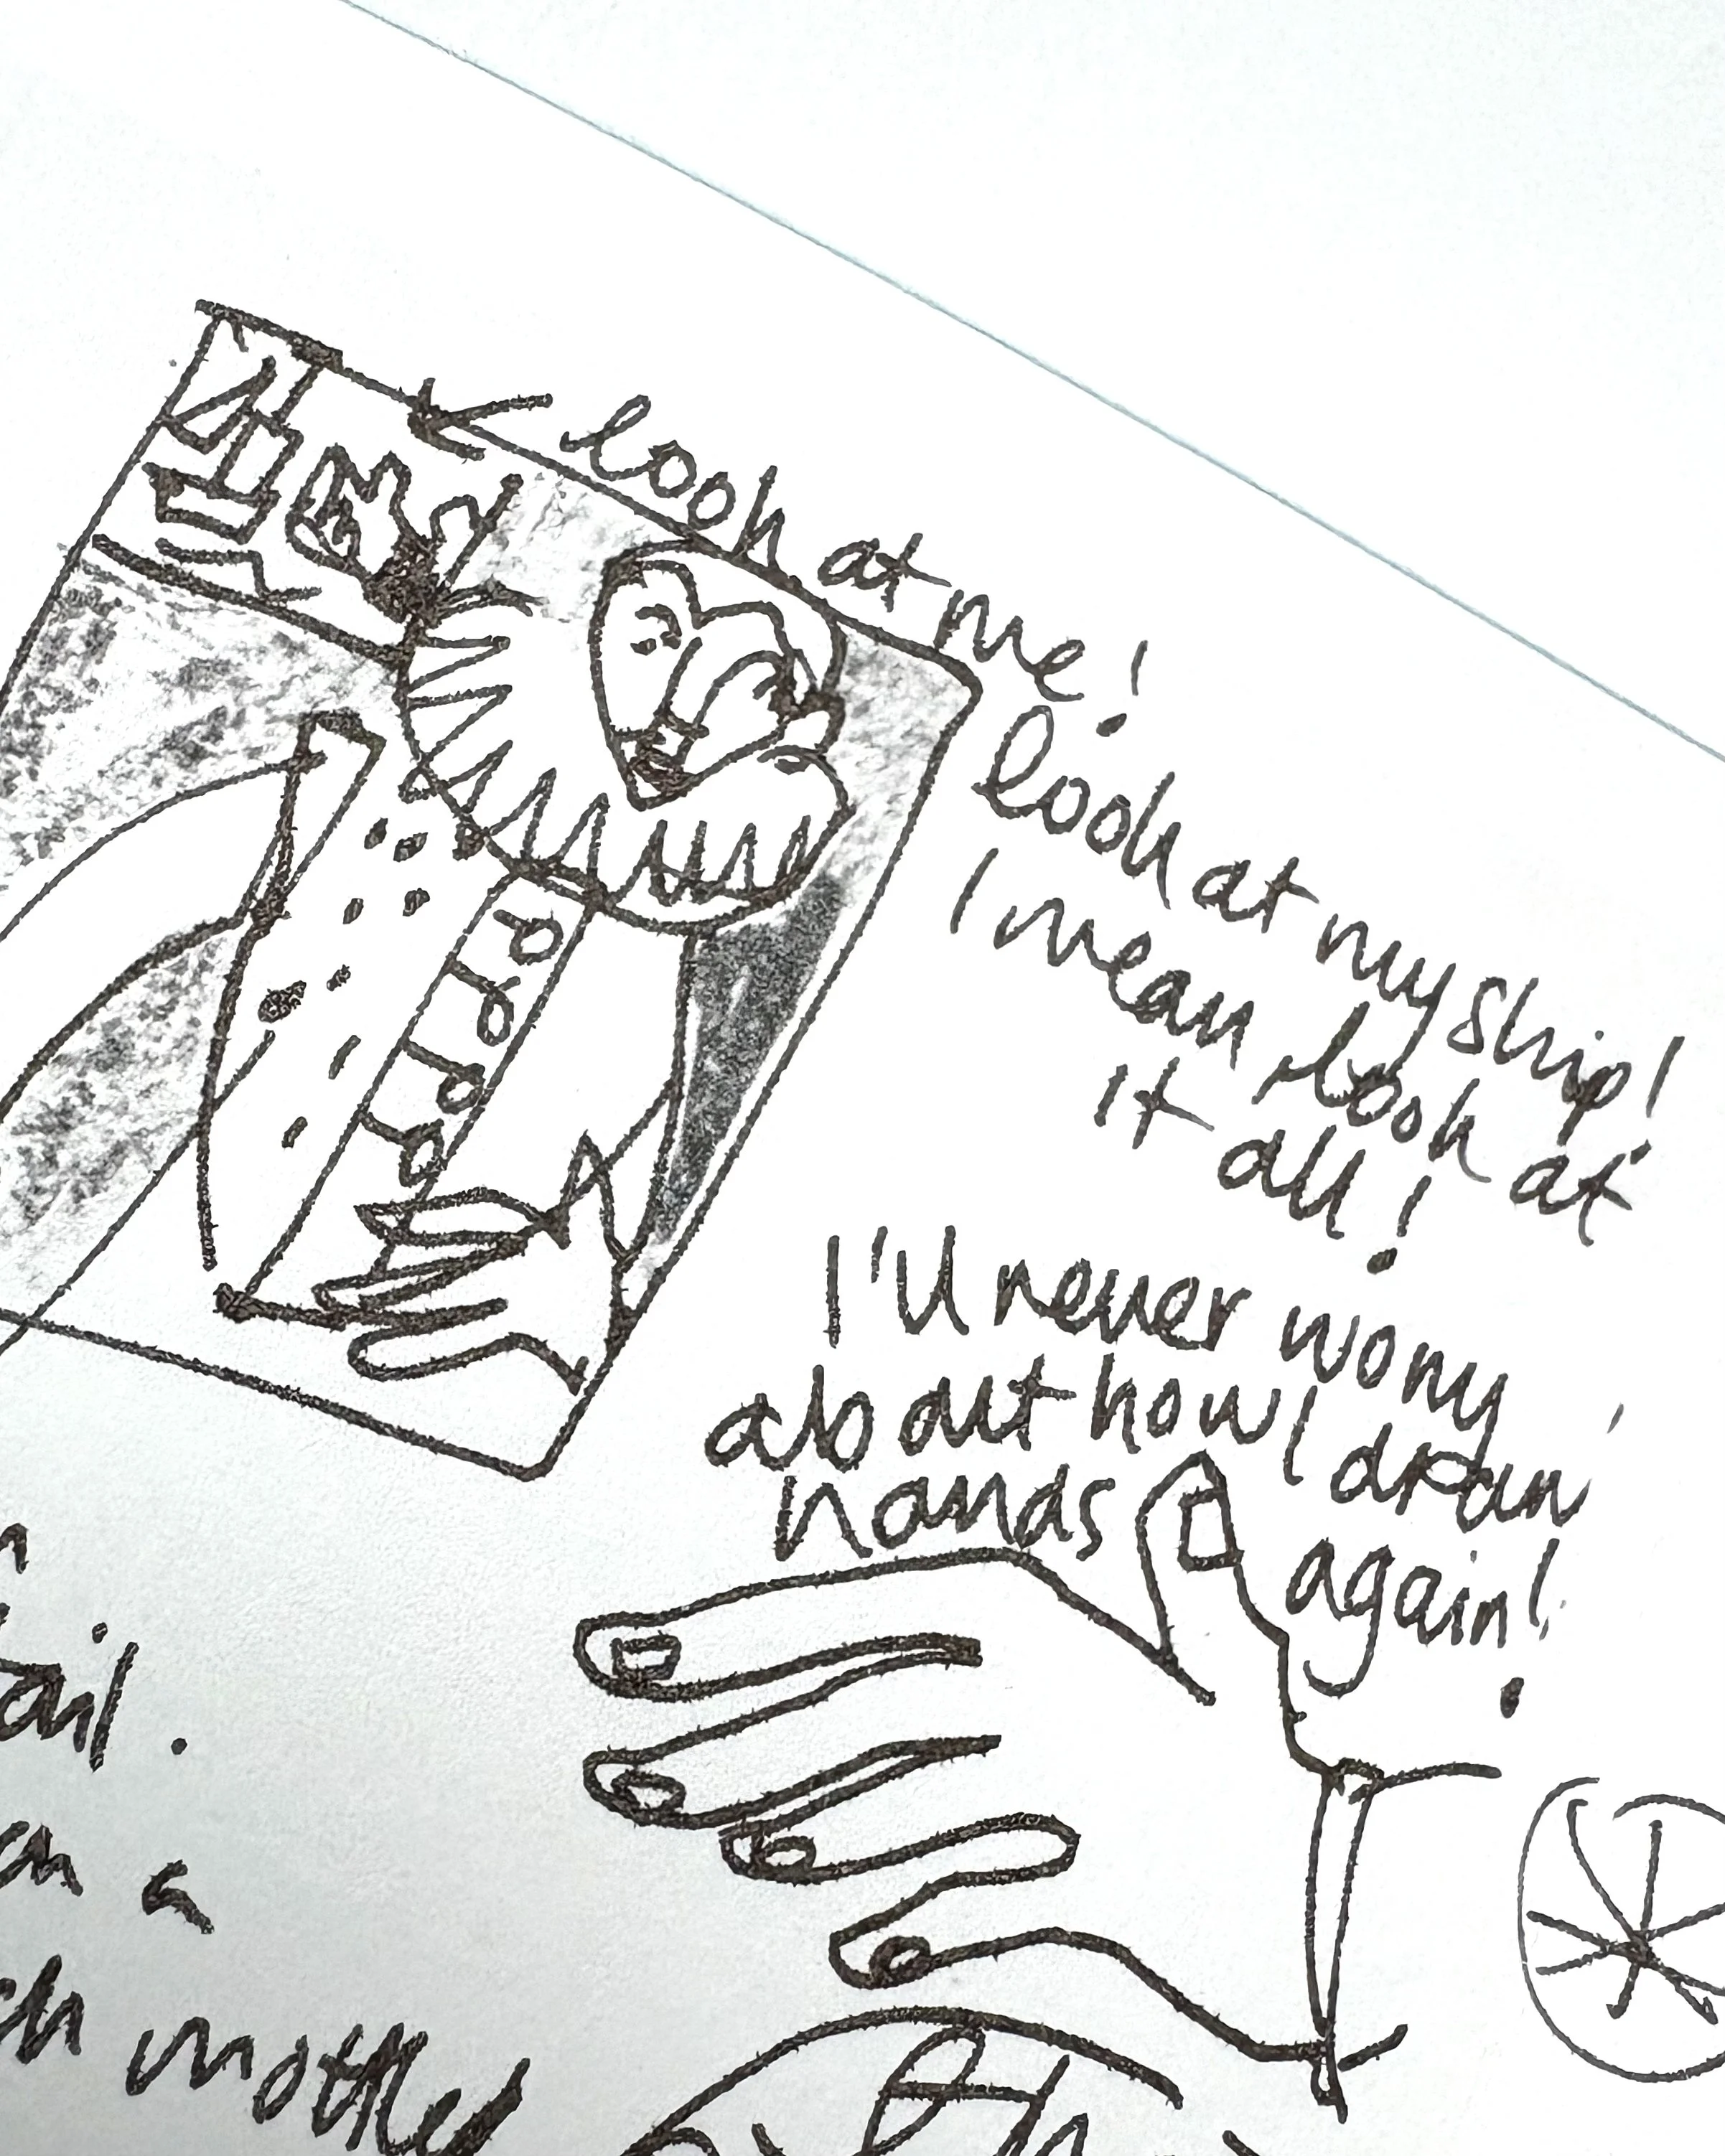 look at me!
look at my ship!
I mean look at
it all!
I'll never worry
about how I draw
hands again!
ail.
a
mother